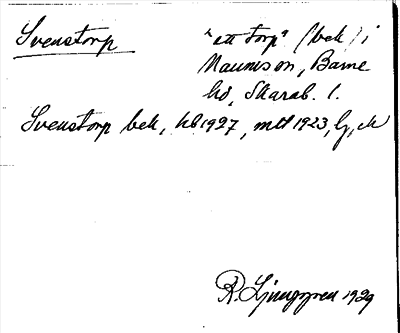 Svenstorp "ett torp" (bek) i
Naumson, Barne
hd, Skarab. l.
Svenstorp bek, hb 1927, mtl 1923, lj, ek
R. Ljunggren 1929